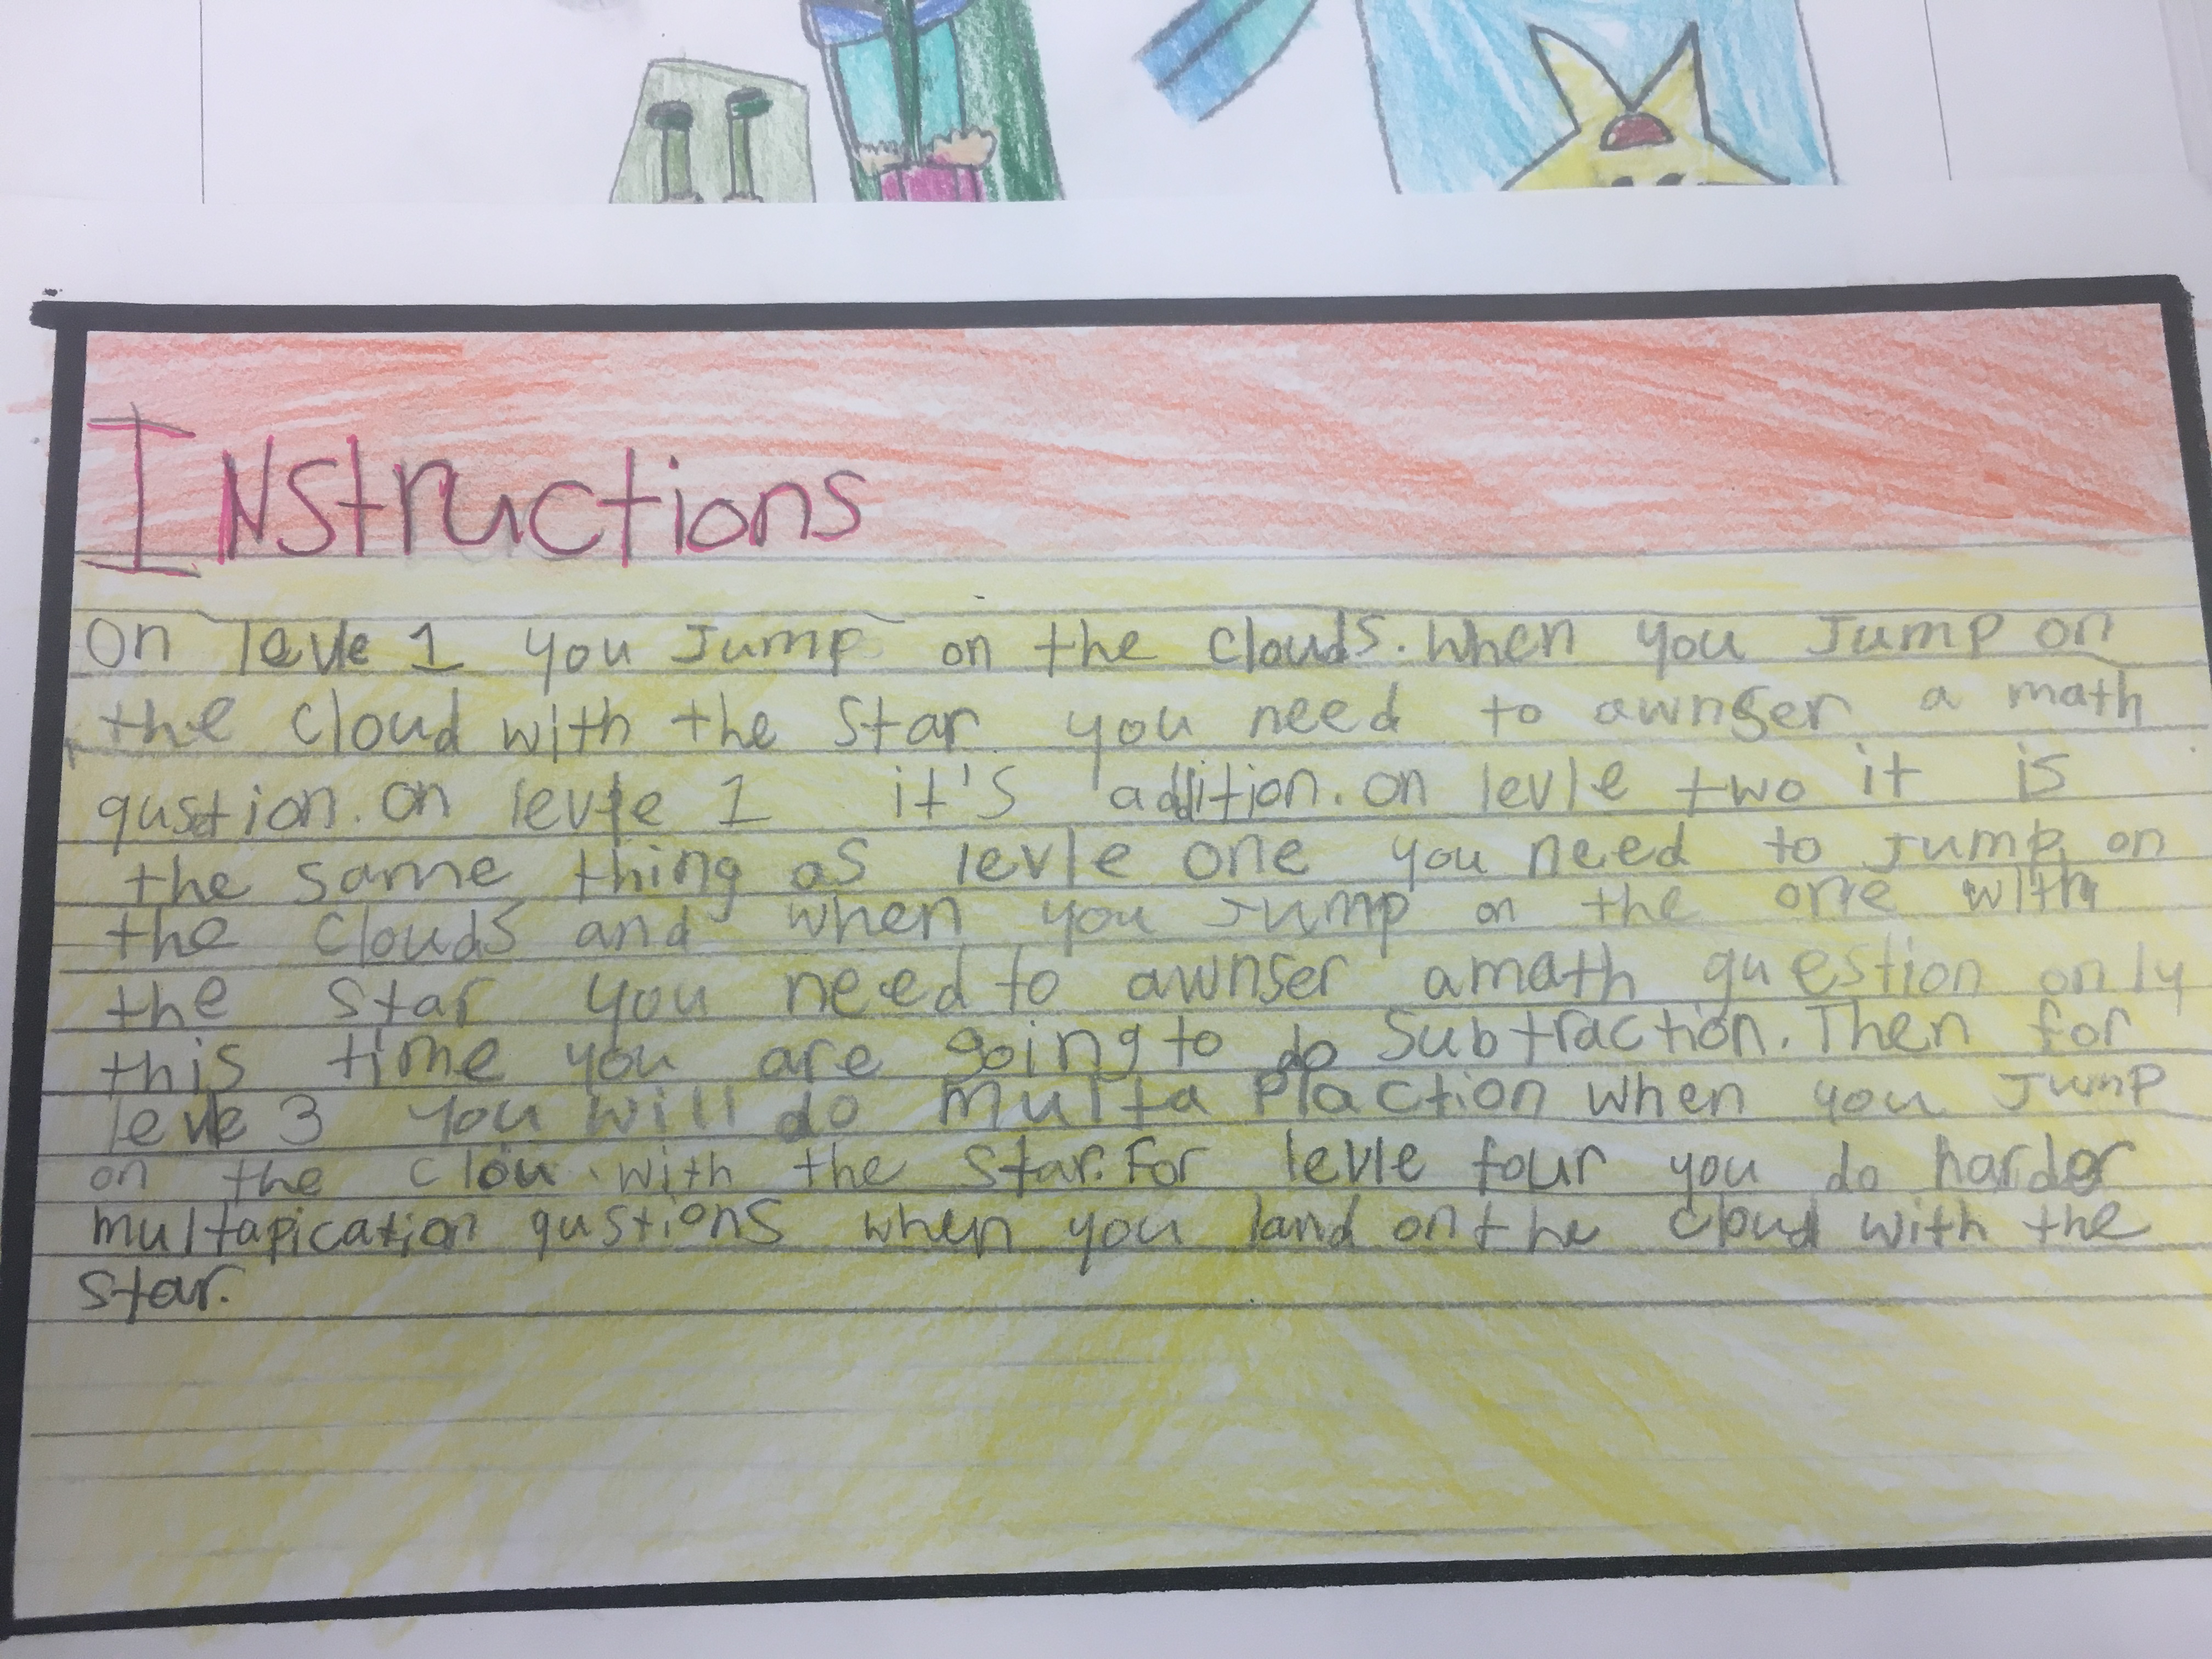 Instructions
on levle 1 you Jump on the clouds. when you Jump on
the cloud with the star you need to awnser a math
qustion. on levle 1 it's addition. on levle two it is
the same thing as levle one you need to Jump on
the clouds and when you Jump on the one with
the star you need to awnser a math question only
this time you are going to do subtraction. Then for
levle 3 you will do multa plaction when you Jump
on the clou with the star. For levle four you do harder
multapication qustions when you land on the cloud with the
star.